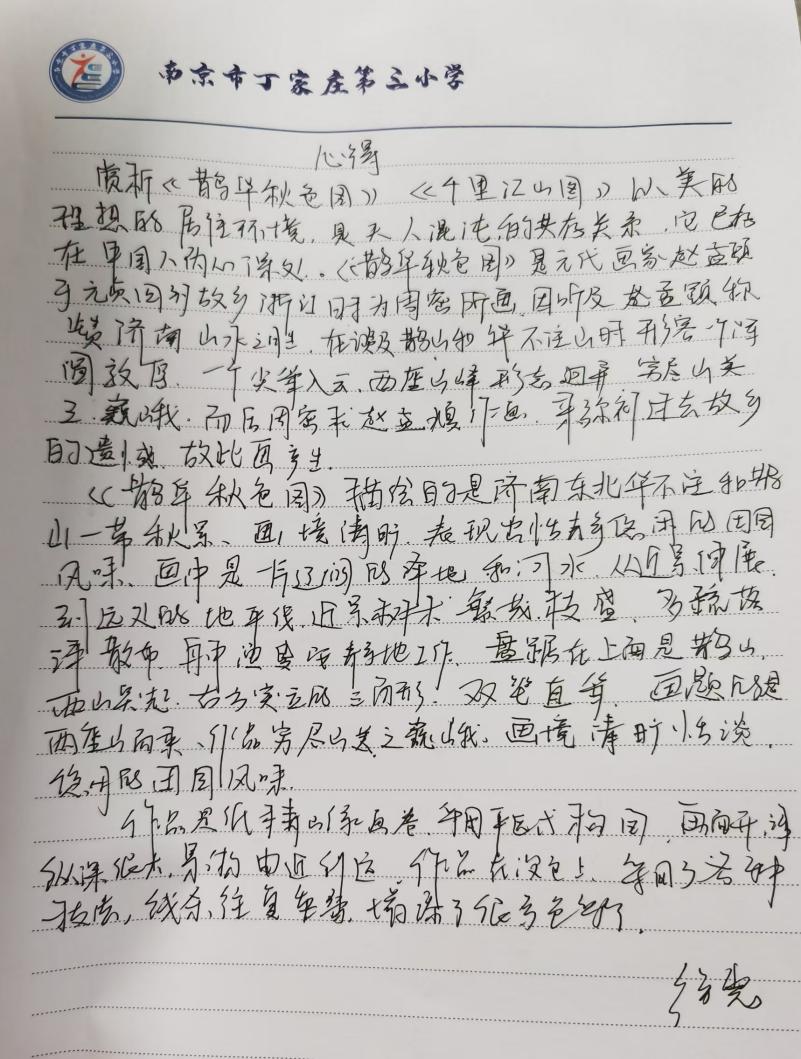 南京市丁家庄第三小学
心得
赏析《鹊华秋色图》《千里江山图》以美的
理想的居住环境，是天人混沌的共存关系，它已存
在中国人内心深处。《鹊华秋色图》是元代画家赵孟頫
于元贞回到故乡浙江时为周密所画，因听及赵孟頫称
赞济南山水之胜，在谈及鹊山和华不注山时形容一个浑
圆敦厚，一个尖耸入云，两座山峰形态迥异 穷尽山美
之巍峨，而后周密求赵孟頫作画，来弥补过去故乡
的遗憾，故此画产生。
《鹊华秋色图》描绘的是济南东北华不注和鹊
山一带秋景、画境清旷，表现出恬 悠闲的田园
风味、画中是一片辽阔的泽地和河水，从近景伸展
到远处的地平线，近景树木 枝盛，多疏落
散布，舟中渔 地工作，盘踞在上面是鹊山，
两山 右方突立的三角形，双 直耸，画题
两座山而来、作品穷尽山美之巍峨，画境清旷恬淡，
悠闲的田园风味。
作品是纸本青山绿 画卷，采用平远式构图，画面
纵深很大，景物由近到远，作品在设色上，运用了各种
技法，线条往复重叠，增添了很多色彩。